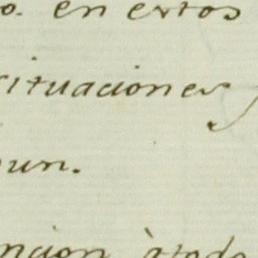 o. en estos
situaciones
un.
ncion àtodo